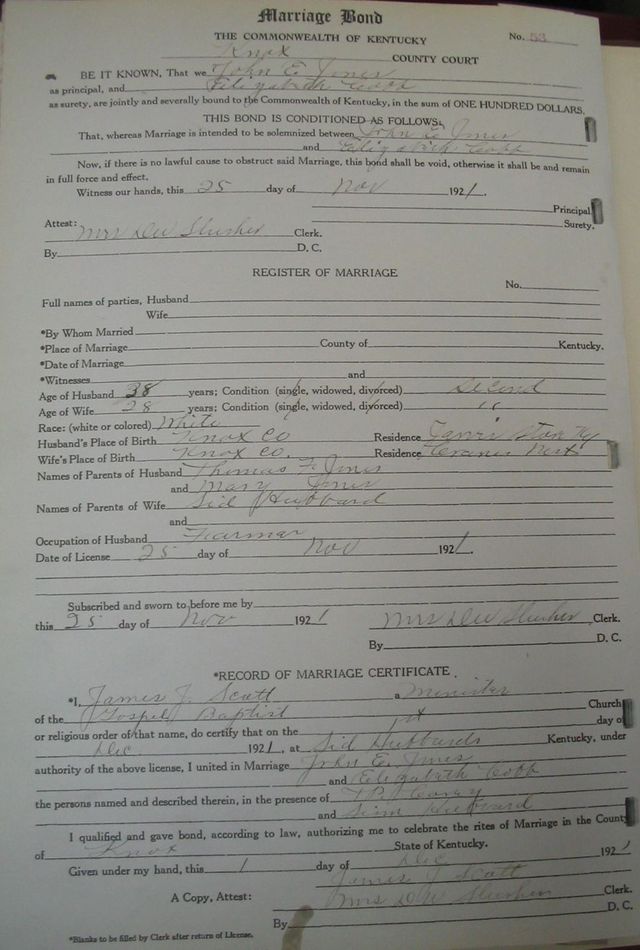 Marriage Bond
THE COMMONWEALTH OF KENTUCKY No. 53
Knox COUNTY COURT
BE IT KNOWN, That we John E. Jones
as principal, and Elizabeth Cobb
as surety, are jointly and severally bound to the Commonwealth of Kentucky, in the sum of ONE HUNDRED DOLLARS.
THIS BOND IS CONDITIONED AS FOLLOWS:
That, whereas Marriage is intended to be solemnized between John E Jones
and Elizabeth Cobb
Now, if there is no lawful cause to obstruct said Marriage, this bond shall be void, otherwise it shall be and remain
in full force and effect.
Witness our hands, this 25 day of Nov 1921.
Principal.
Surety.
Attest: Mrs Dw Slusher Clerk.
By D. C.
REGISTER OF MARRIAGE
No.
Full names of parties, Husband
Wife
*By Whom Married
*Place of Marriage County of Kentucky.
*Date of Marriage
*Witnesses and
Age of Husband 38 years; Condition (single, widowed, divorced) Second
Age of Wife 28 years; Condition (single, widowed, divorced) "
Race: (white or colored) White
Husband's Place of Birth Knox Co Residence Ky
Wife's Place of Birth Knox Co. Residence Nest
Names of Parents of Husband Thomas F. Jones
and Mary Jones
Names of Parents of Wife Sid Hubbard
and
Occupation of Husband Farmar
Date of License 25 day of Nov 1921.
Subscribed and sworn to before me by
this 25 day of Nov 1921 Mrs Dw Slusher Clerk.
By D. C.
*RECORD OF MARRIAGE CERTIFICATE.
*I, James J. Scott a Minister
of the Gospel Baptist Church,
or religious order of that name, do certify that on the 1st day of
Dec 1921, at Sid Hubbards Kentucky, under
authority of the above license, I united in Marriage John E. Jones
and Elizabeth Cobb
the persons named and described therein, in the presence of
and Sim Hubbard
I qualified and gave bond, according to law, authorizing me to celebrate the rites of Marriage in the County
of Knox State of Kentucky.
Given under my hand, this 1 day of Dec 1921
James J Scott
A Copy, Attest: Mrs D W Slusher Clerk.
By D. C.
*Blanks to be filled by Clerk after return of License.